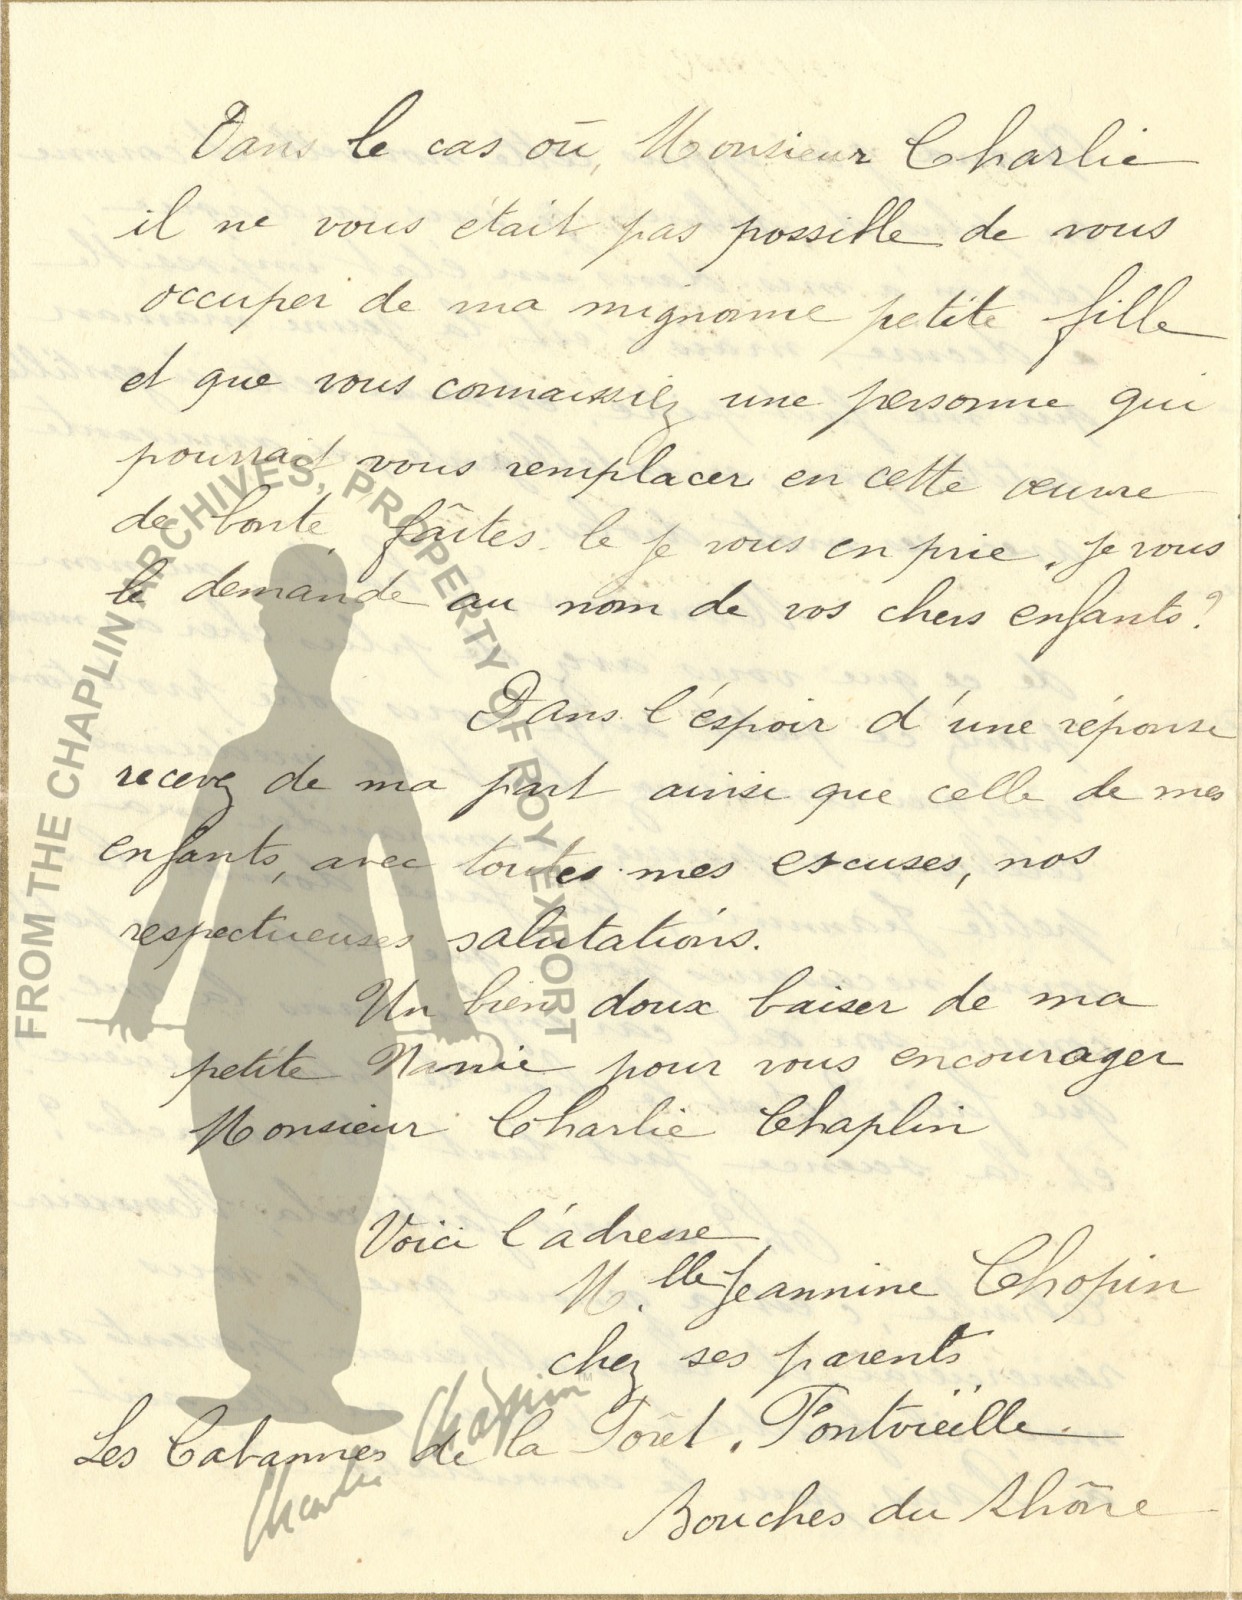 Dans le cas où, Monsieur Charlie
il ne vous était pas possible de vous
occuper de ma mignonne petite fille
et que vous connaissiez une personne qui
pourrait vous remplacer en cette œuvre
de bonté, fâites-le je vous en prie, je vous
le demande au nom de vos chers enfants?
Dans l'éspoir d'une réponse
recevez de ma part ainsi que celle de mes
enfants, avec toutes mes excuses, nos
respectueuses salutations.
Un bien doux baiser de ma
petite Nanie pour vous encourager
Monsieur Charlie Chaplin
Voici l'adresse
M.lle Jeannine Chopin
chez ses parents
Les Cabannes de la Forêt. Fontvieille
Bouches du Rhône
FROM THE CHAPLIN ARCHIVES, PROPERTY OF ROY EXPORT
Charlie Chaplin™